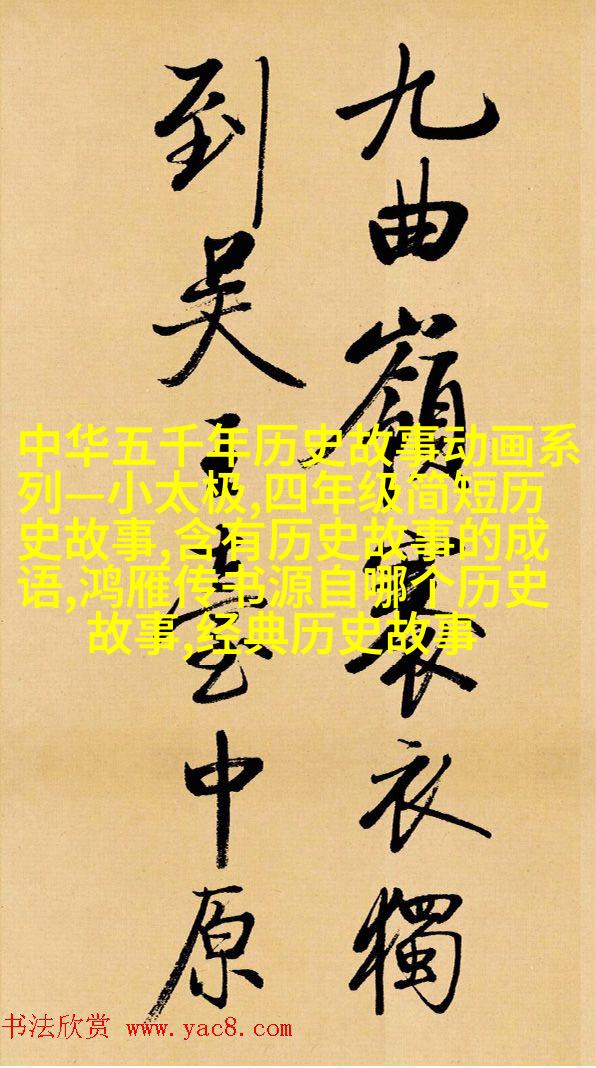 九曲嶺衣獨
到吳王臺中原
中华五千年历史故事动画系
列—小太极,四年级简短历
史故事,含有历史故事的成
语,鸿雁传书源自哪个历史
故事,经典历史故事
书法欣赏 www.yac8.com